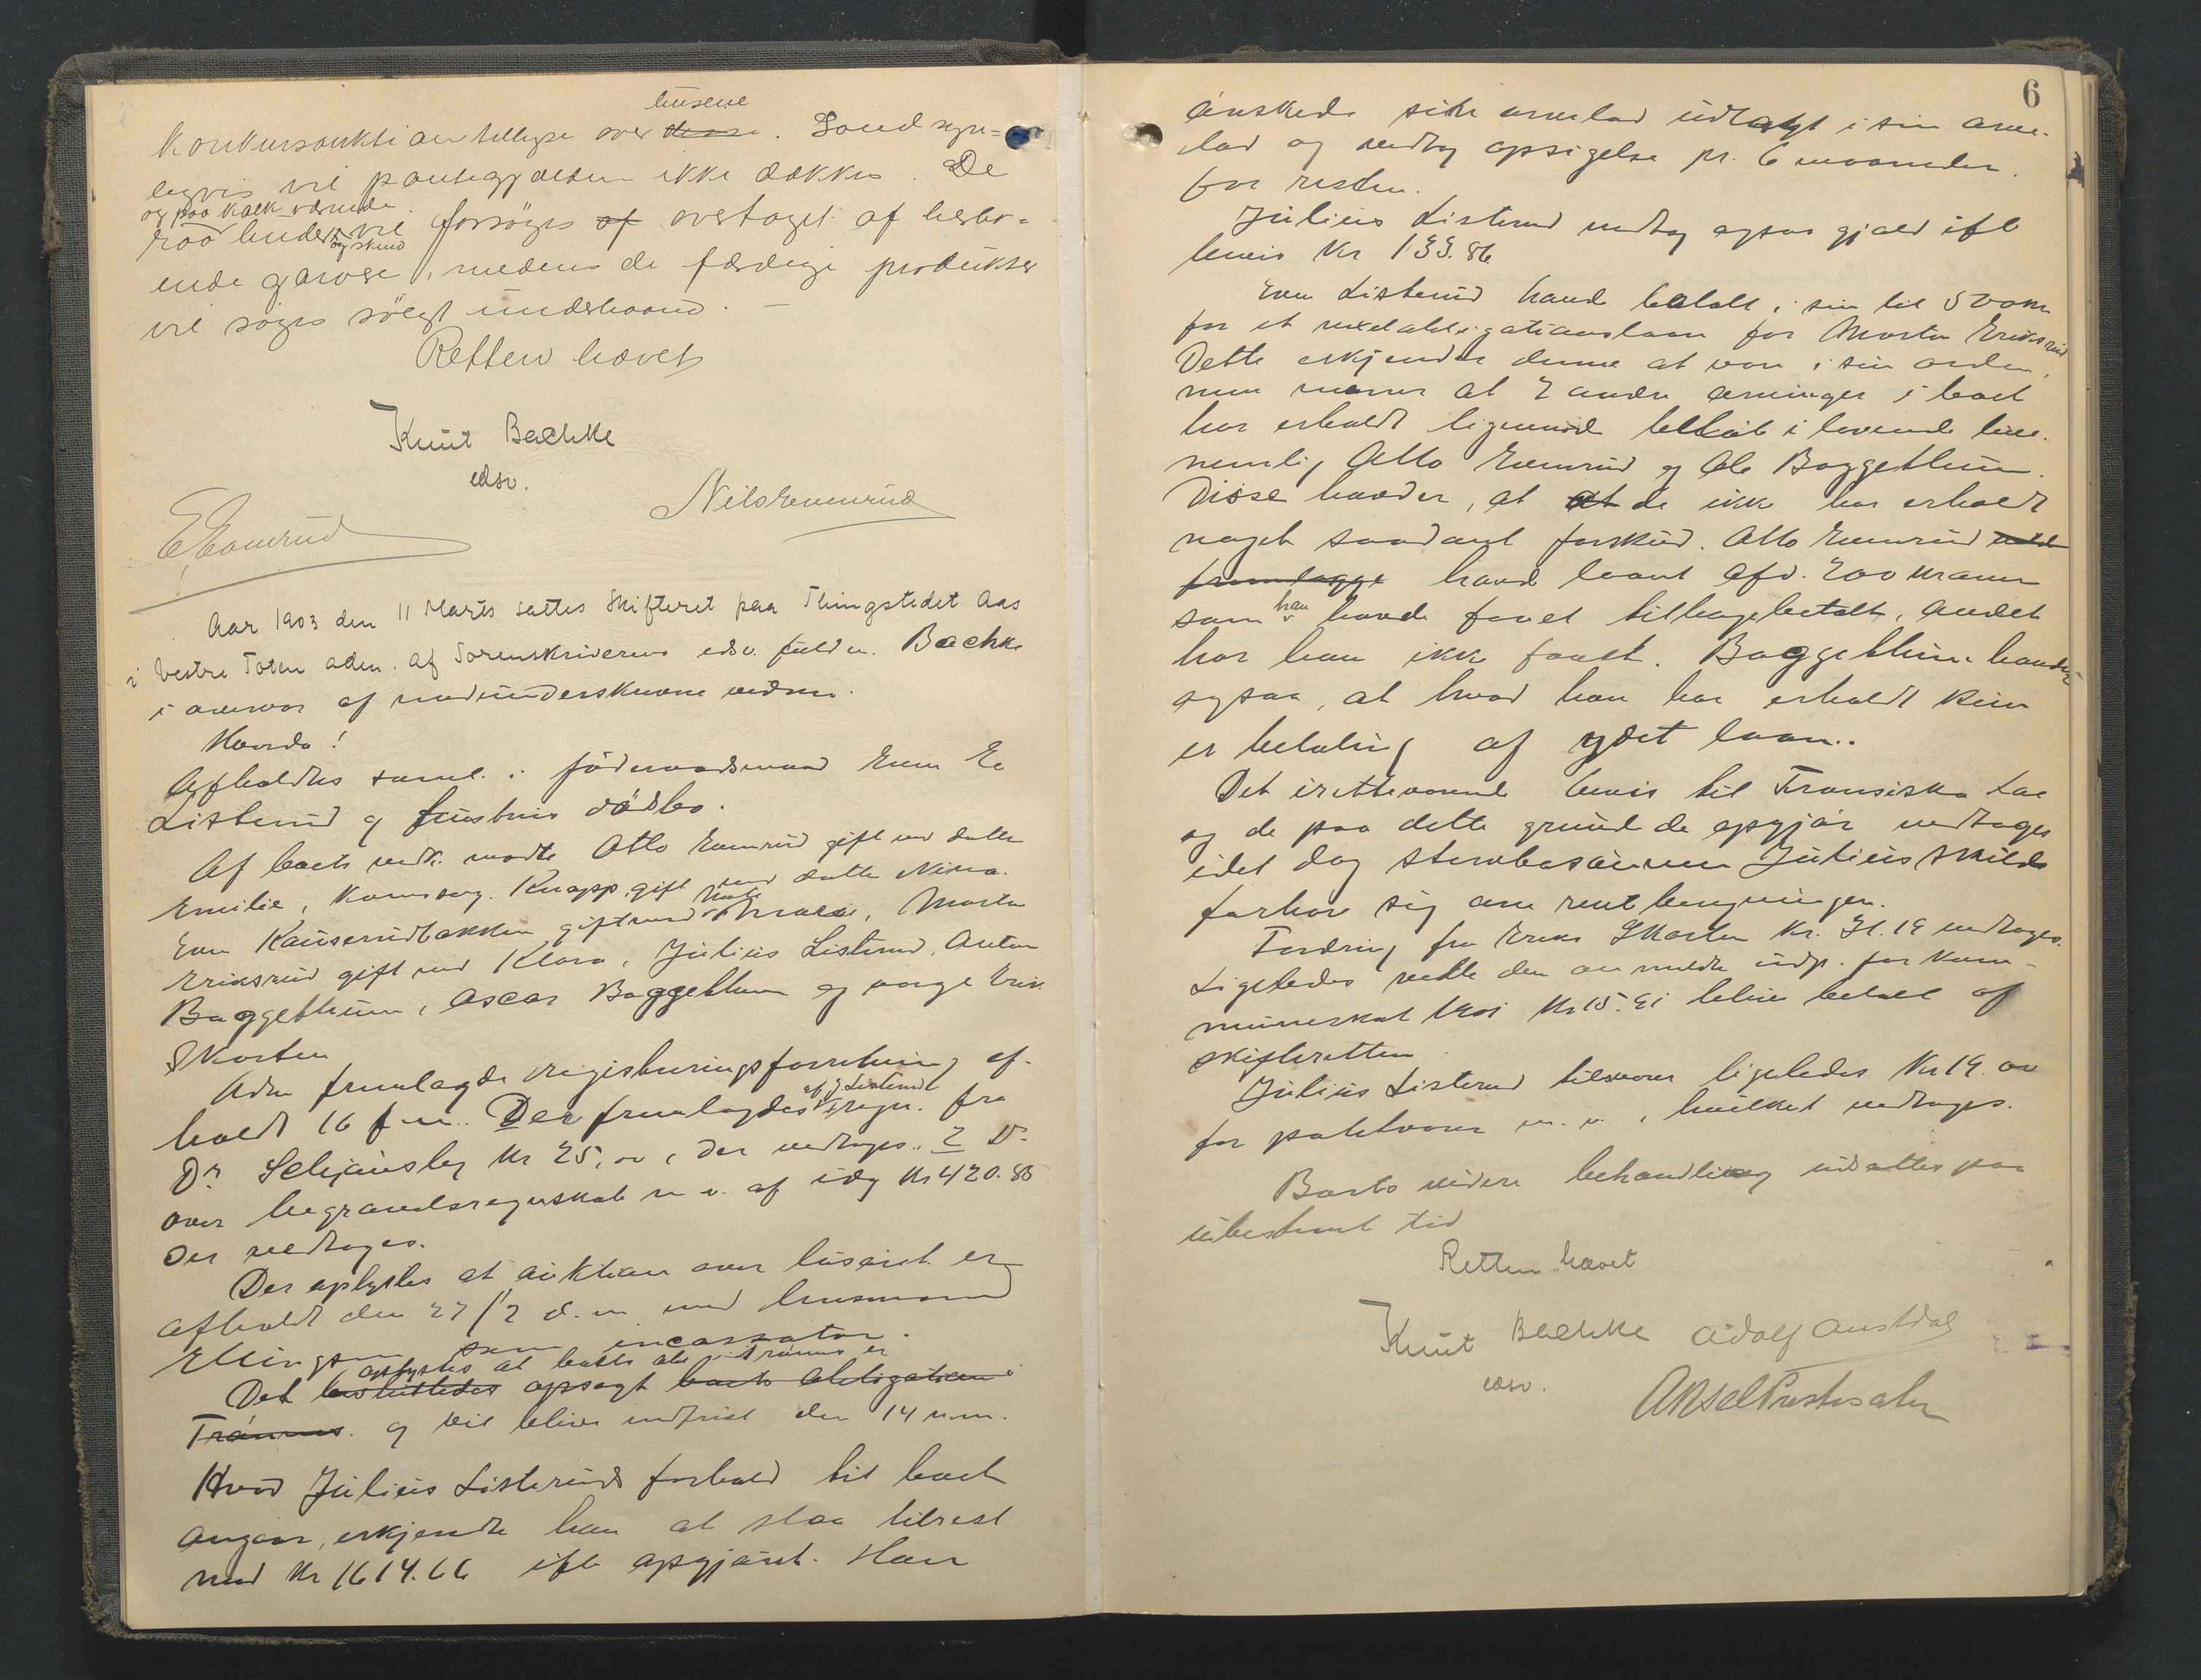 husene
Konkursauktion tillyse over disse. Sandsyn=
ligvis vil pantegjælden ikke dækkes. De
og paa kalk værende
raa huder vil forsøges af overtaget af herbo=
og skind
ende garver, medens de færdige produkter
vil søges solgt underhaand. —
Retten hævet
Knut Bachke
edsv.
Nils Evenrud
E. Evenrud
Aar 1903 den 11 Marts sattes Skifteret paa Thingstedet Aas
i Vestre Toten adm. af Sorenskriverens edsv. fuldm. Bachke
i overvær af medunderskrevne vidner.
Hvorda!
Afholdtes saml. i föderaadsmand Even E
Listerud og hustrus dödsbo.
Af boets vedk. mødte Otto Evenrud gift med datter
Emilie, Konr. Knapp, gift med datter Nina.
Even Kauserudbakken gift med Mathea, Morten
Eriksrud gift med Klara, Julius Listerud, Anton
Baggethun, Oscar Baggethun og værge Erik
Skarten
Adm fremlagde registreringsforretning af-
holdt 16 f. m. Der fremlagdes af J Listerud regn. fra
Dr. Schjønsby Kr 25,00, der vedtages. 2 D-
over begravelsesregnskab m v. af idag Kr 420.85
der vedtages.
Der oplystes at auktion over løsøret er
afholdt den 27/2 d. m med husmand
Ellingsen som incassator.
oplystes at boets obl. i Trónnes er
Det besluttedes opsagt boets Obligation i
Trónnes. og vil blive indfriet den 14 n.m.
Hvad Julius Listeruds forhold til boet
angaar, erkjendte han at staa tilrest
med Kr 1614.66 ifl opgjørt. Han
6
ønskede sin arvelod udlagt i sin arve-
lod og vedtog opsigelse pr. 6 maaneder
for resten.
Julius Listerud vedtog ogsaa gjæld ifl
bevis Kr 133.86
Even Listerud havde betalt i sin tid 500 kr
for et vexelobligationslaan for Morten Eriksrud
Dette erkjender denne at være i sin orden,
men mener at 2 andre arvinger i boet
har erholdt lignende beløb i levende live.
nemlig Otto Evenrud og Ole Baggethun.
Disse hævder, at at de ikke har erholdt
noget saadant forskud. Otto Evenrud
fremlægge havde laant afd. 200 kroner
som han havde faaet tilbagebetalt, andet
har han ikke faaet. Baggethun hævder
ogsaa, at hvad han har erholdt kun
er betaling af ydet laan.
Det iretteværende bevis til Fransiska
og de paa dette grundede opgjør vedtages
idet dog stervbosønnen Julius Skilds
forhør sig om renteberegningen.
Fordring fra Eriks Skarten Kr. 31.19 vedtages.
Ligeledes vedtoges den anmeldte udp. for kom-
muneskat 1901 Kr 15.91 blive betalt af
skifteretten
Julius Listerud tilsvarer ligeledes Kr 19.00
for paktvarer m. v. , hvilket vedtages.
Boets videre behandling udsattes paa
ubestemt tid
Retten hævet
Knut Bachke
edsv.
Adolf Austdal
Aksel Prestesater